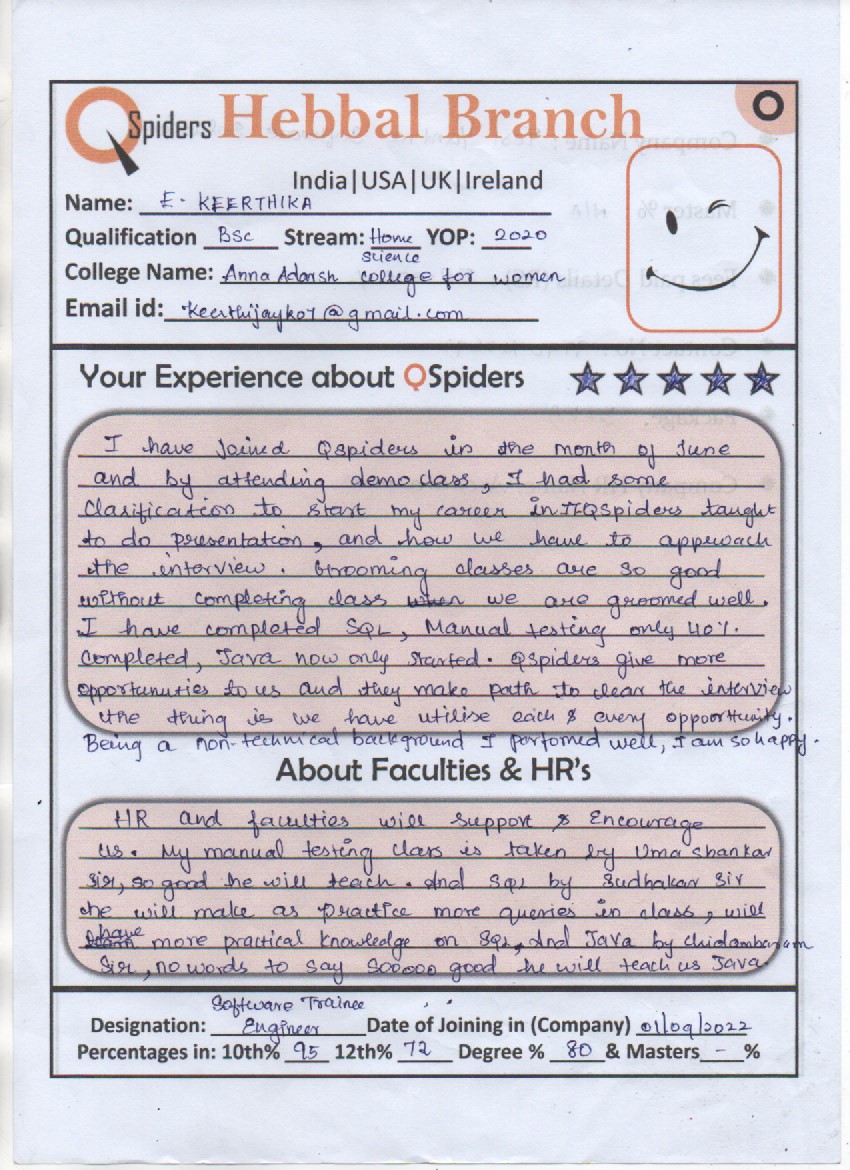 QSpiders Hebbal Branch
India|USA|UK|Ireland
Name: E. KEERTHIKA
Qualification Bsc Stream: Home science YOP: 2020
College Name: Anna Adarsh college for women
Email id: keerthijayk07@gmail.com
Your Experience about QSpiders
I have Joined Qspiders in the month of June
and by attending demo class, I had some
Clarification to start my career in IT. QSpiders taught
to do presentation, and how we have to approach
the interview. Grooming classes are so good
without completing class we are groomed well.
I have completed SQL, Manual testing only 40%.
Completed, Java now only started. Qspiders give more
opportunities to us and they make path to clear the interview
the thing is we have utilise each & every oppoortunity.
Being a non-technical background I performed well, I am so happy.
About Faculties & HR's
HR and faculties will support & Encourage
us. My manual testing class is taken by Uma shankar
Sir, so good he will teach. And SQL by Sudhakar Sir
he will make as practice more queries in class, will
have more practical knowledge on SQL, And Java by chidambaram
Sir, no words to say Sooooo good he will teach us Java.
Designation: Software Trainee Engineer Date of Joining in (Company) 01/09/2022
Percentages in: 10th% 95 12th% 72 Degree % 80 & Masters - %